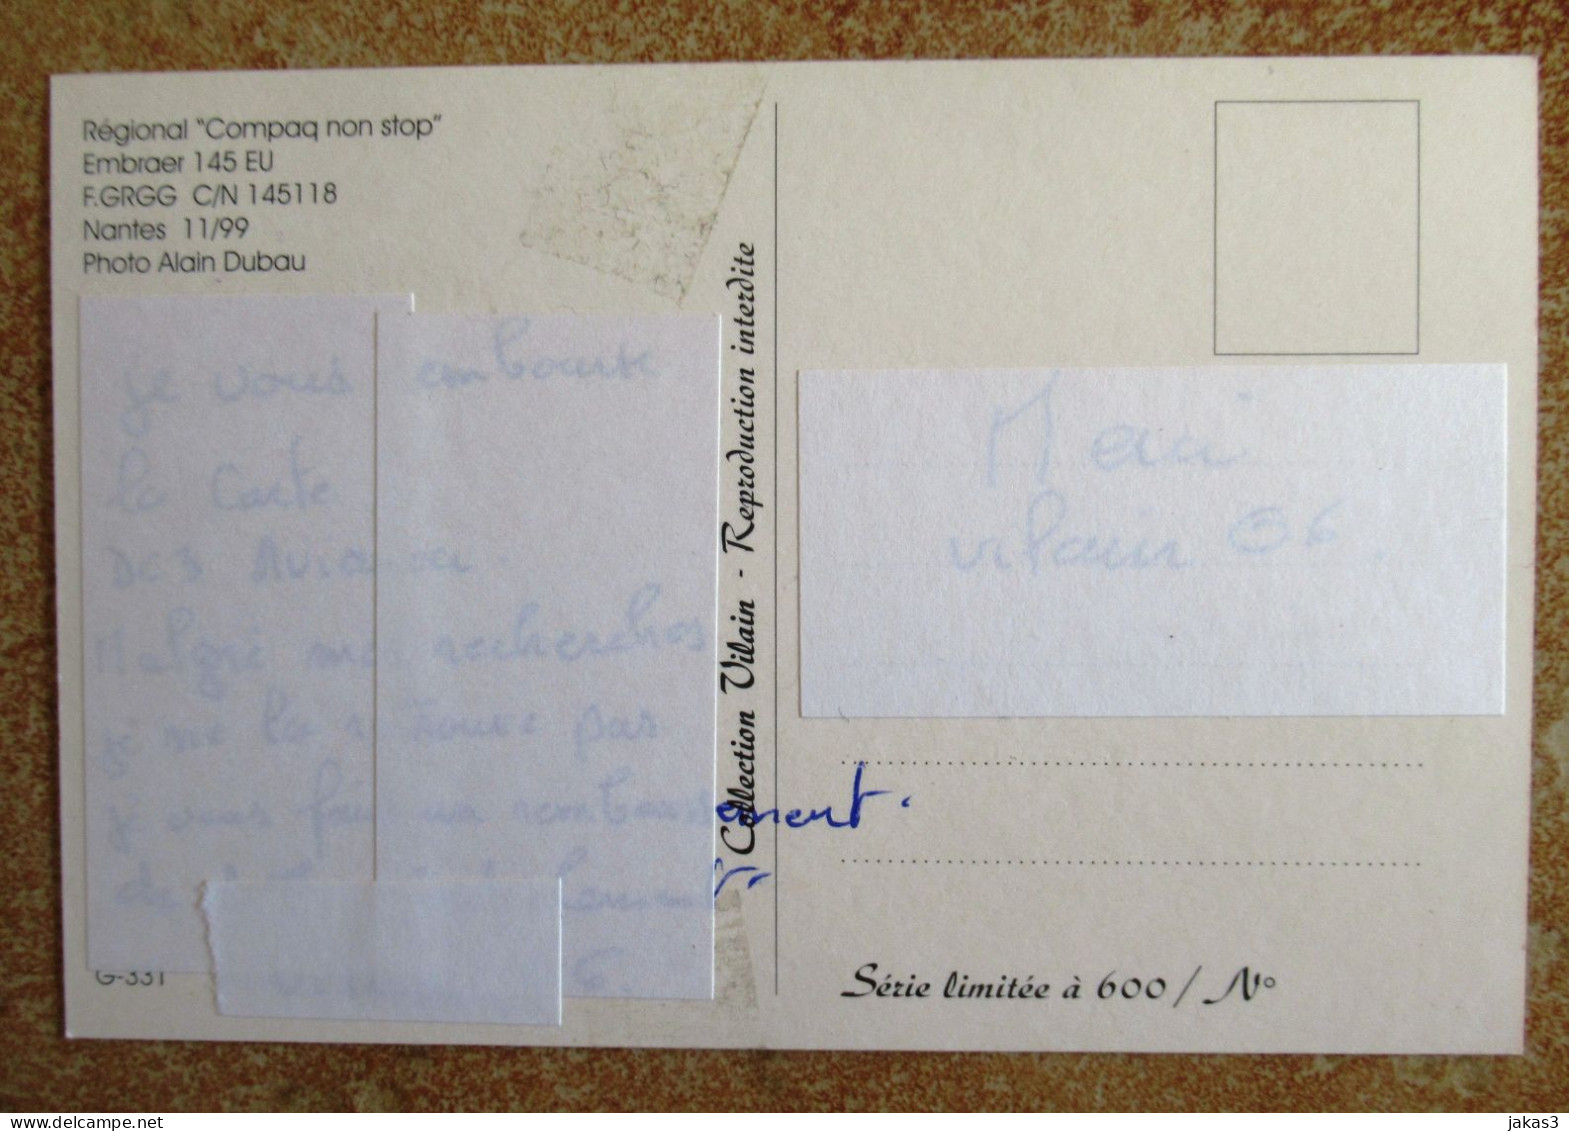 Régional "Compaq non stop"
Embraer 145 EU
F.GRGG C/N 145118
Nantes 11/99
Photo Alain Dubau
je vous
la Carte
DES
Malgré mes recherches
je ne la retrouve pas
je vous fais un remboursement.
de
G-331
Collection Vilain - Reproduction interdite
Merci
vilain 06.
Série limitée à 600 / N°
jakas3